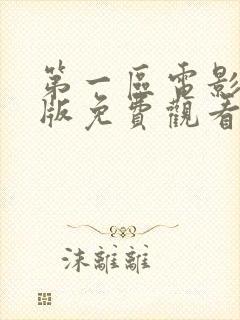 第一區電影
版免費觀看
沫離離